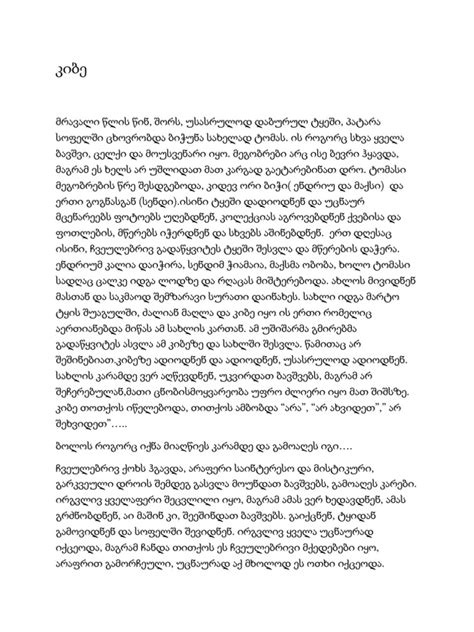 კიბე
მრავალი წლის წინ, შორს, უსასრულოდ დაბურულ ტყეში, პატარა
სოფელში ცხოვრობდა ბიჭუნა სახელად ტომას. ის როგორც სხვა ყველა
ბავშვი, ცელქი და მოუსვენარი იყო. მეგობრები არც ისე ბევრი ჰყავდა,
მაგრამ ეს ხელს არ უშლიდათ მათ კარგად გაეტარებინათ დრო. ტომასი
მეგობრების წრე შესდგებოდა, კიდევ ორი ბიჭი( ენდრიუ და მაქსი) და
ერთი გოგნასგან (სენდი).ისინი ტყეში დადიოდნენ და უცნაურ
მცენარეებს ფოტოებს უღებდნენ, კოლექციას აგროვებდნენ ქვებისა და
ფოთლების, მწერებს იჭერდნენ და სხვებს აშინებდნენ. ერთ დღესაც
ისინი, ჩვეულებრივ გადაწყვიტეს ტყეში შესვლა და მწერების დაჭერა.
ენდრიუმ კალია დაიჭირა, სენდიმ ჭიამაია, მაქსმა ობობა, ხოლო ტომასი
სადღაც ცალკე იდგა ლოდზე და რღაცას მიშტერებოდა. ახლოს მივიდნენ
მასთან და საკმაოდ შემზარავი სურათი დაინახეს. სახლი იდგა მარტო
ტყის შუაგულში, ძალიან მაღლა და კიბე იყო ის ერთი რომელიც
აერთიანებდა მიწას ამ სახლის კართან. ამ უშიშარმა გმირებმა
გადაწყვიტეს ასვლა ამ კიბეზე და სახლში შესვლა. წამითაც არ
შეშინებიათ.კიბეზე ადიოდნენ და ადიოდნენ, უსასრულოდ ადიოდნენ.
სახლის კარამდე ვერ აღწევდნენ, უკვირდათ ბავშვებს, მაგრამ არ
შეჩერებულან,მათი ცნობისმოყვარეობა უფრო ძლიერი იყო მათ შიშზე.
კიბე თოთქოს იწელებოდა, თითქოს ამბობდა “არა”, “არ ახვიდეთ”,” არ
შეხვიდეთ”…..
ბოლოს როგორც იქნა მიაღწიეს კარამდე და გამოაღეს იგი….
ჩვეულებრივ ქოხს ჰგავდა, არაფერი საინტერესო და მისტიკური,
გარკვეული დროის შემდეგ გასვლა მოუნდათ ბავშვებს, გამოაღეს კარები.
ირგვლივ ყველაფერი შეცვლილი იყო, მაგრამ ამას ვერ ხედავდნენ, ამას
გრძნობდნენ, აი მაშინ კი, შეეშინდათ ბავშვებს. გაიქცნენ, ტყიდან
გამოვიდნენ და სოფელში შევიდნენ. ირგვლივ ყველა უცნაურად
იქცეოდა, მაგრამ ჩანდა თითქოს ეს ჩვეულებრივი მქედებები იყო,
არაფრით გამორჩეული, უცნაურად აქ მხოლოდ ეს ოთხი იქცეოდა.